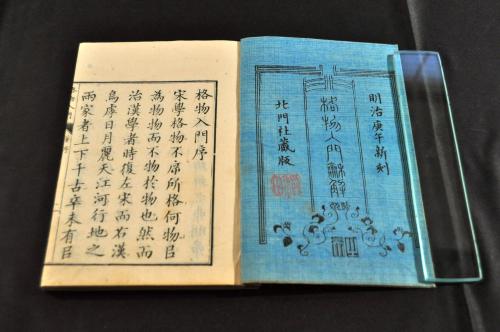 明治庚午新刻
格物入門龢解
北門社藏版
格物入門序
宋學格物不所格何物㠯
為物物而不物於物也然而
治漢學者時復左宋而右漢
烏虖日月麗天江河行地之
兩家者上下千古卒未有㠯